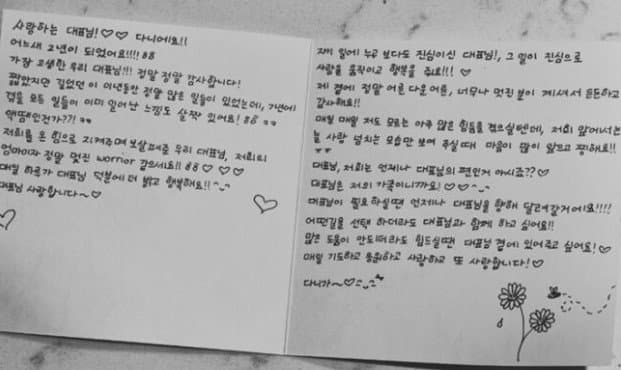 사랑하는 대표님!♡♡ 다니에요!!
어느새 2년이 되었어요!!!! ㅎㅎ
가장 고생한 우리 대표님!!! 정말 정말 감사합니다!
짧았지만 길었던 이 이년동안 정말 많은 일들이 있었는데, 7년에
겪을 모든 일들이 이미 일어난 느낌도 살짝 있어요! ㅎㅎ ㅠㅠ
액땜인건가??! ㅠㅠ
저희를 온 힘으로 지켜주며 보살펴준 우리 대표님, 저희의
엄마이자 정말 멋진 worrior 같으세요!! ㅎㅎ ♡♡♡
매일 하루가 대표님 덕분에 더 밝고 행복해요!! ^_^
대표님 사랑합니다~♡
자기 일에 누구 보다도 진심이신 대표님!, 그 일이 진심으로
사람을 움직이고 행복을 줘요!!! ♡
제 곁에 정말 어른 다운 어른, 너무나 멋진 분이 계셔서 든든하고
감사해요!!
매일 매일 저도 모르는 아주 많은 힘듦을 겪으실텐데, 저희 앞에서는
늘 사랑 넘치는 모습만 보여 주실 때 마음이 많이 아프고 찡해요!!
ㅠㅠ
대표님, 저희는 언제나 대표님의 편인거 아시죠?? ♡
대표님은 저의 가족이니까요! ♡♡ ^_^
대표님이 필요하실땐 언제나 대표님을 향해 달려갈거에요!!!!
어떤길을 선택 하더라도 대표님과 함께 하고 싶어요!!
많은 도움이 안되더라도 힘드실땐 대표님 곁에 있어주고 싶어요!♡
매일 기도하고 응원하고 사랑하고 또 사랑합니다!♡
다니가~♡